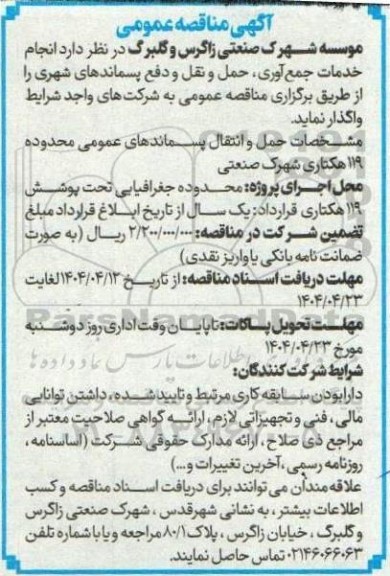 آگهی مناقصه عمومی
موسسه شهرک صنعتی زاگرس و گلبرگ در نظر دارد انجام
خدمات جمع‌آوری، حمل و نقل و دفع پسماندهای شهری را
از طریق برگزاری مناقصه عمومی به شرکت‌های واجد شرایط
واگذار نماید.
مشخصات حمل و انتقال پسماندهای عمومی محدوده
۱۱۹ هکتاری شهرک صنعتی
محل اجرای پروژه: محدوده جغرافیایی تحت پوشش
۱۱۹ هکتاری قرارداد: یک سال از تاریخ ابلاغ قرارداد مبلغ
تضمین شرکت در مناقصه: ۲/۲۰۰/۰۰۰/۰۰۰ ریال (به صورت
ضمانت نامه بانکی یا واریز نقدی)
مهلت دریافت اسناد مناقصه: از تاریخ ۱۴۰۴/۰۴/۱۲ لغایت
۱۴۰۴/۰۴/۲۳
مهلت تحویل پاکات: تا پایان وقت اداری روز دوشنبه
مورخ ۱۴۰۴/۰۴/۲۳
شرایط شرکت کنندگان:
دارا بودن سابقه کاری مرتبط و تایید شده، داشتن توانایی
مالی، فنی و تجهیزاتی لازم، ارائه گواهی صلاحیت معتبر از
مراجع ذی صلاح، ارائه مدارک حقوقی شرکت (اساسنامه،
روزنامه رسمی، آخرین تغییرات و...)
علاقه‌مندان می‌توانند برای دریافت اسناد مناقصه و کسب
اطلاعات بیشتر، به نشانی شهرقدس، شهرک صنعتی زاگرس
و گلبرگ، خیابان زاگرس، پلاک ۸۰/۱ مراجعه و یا با شماره تلفن
۰۲۱۴۶۰۶۶۰۶۳ تماس حاصل نمایند.
ParsNamadData